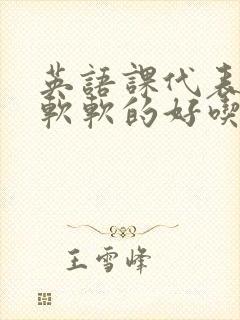 英語課代表
軟軟的好喫
王雪峰